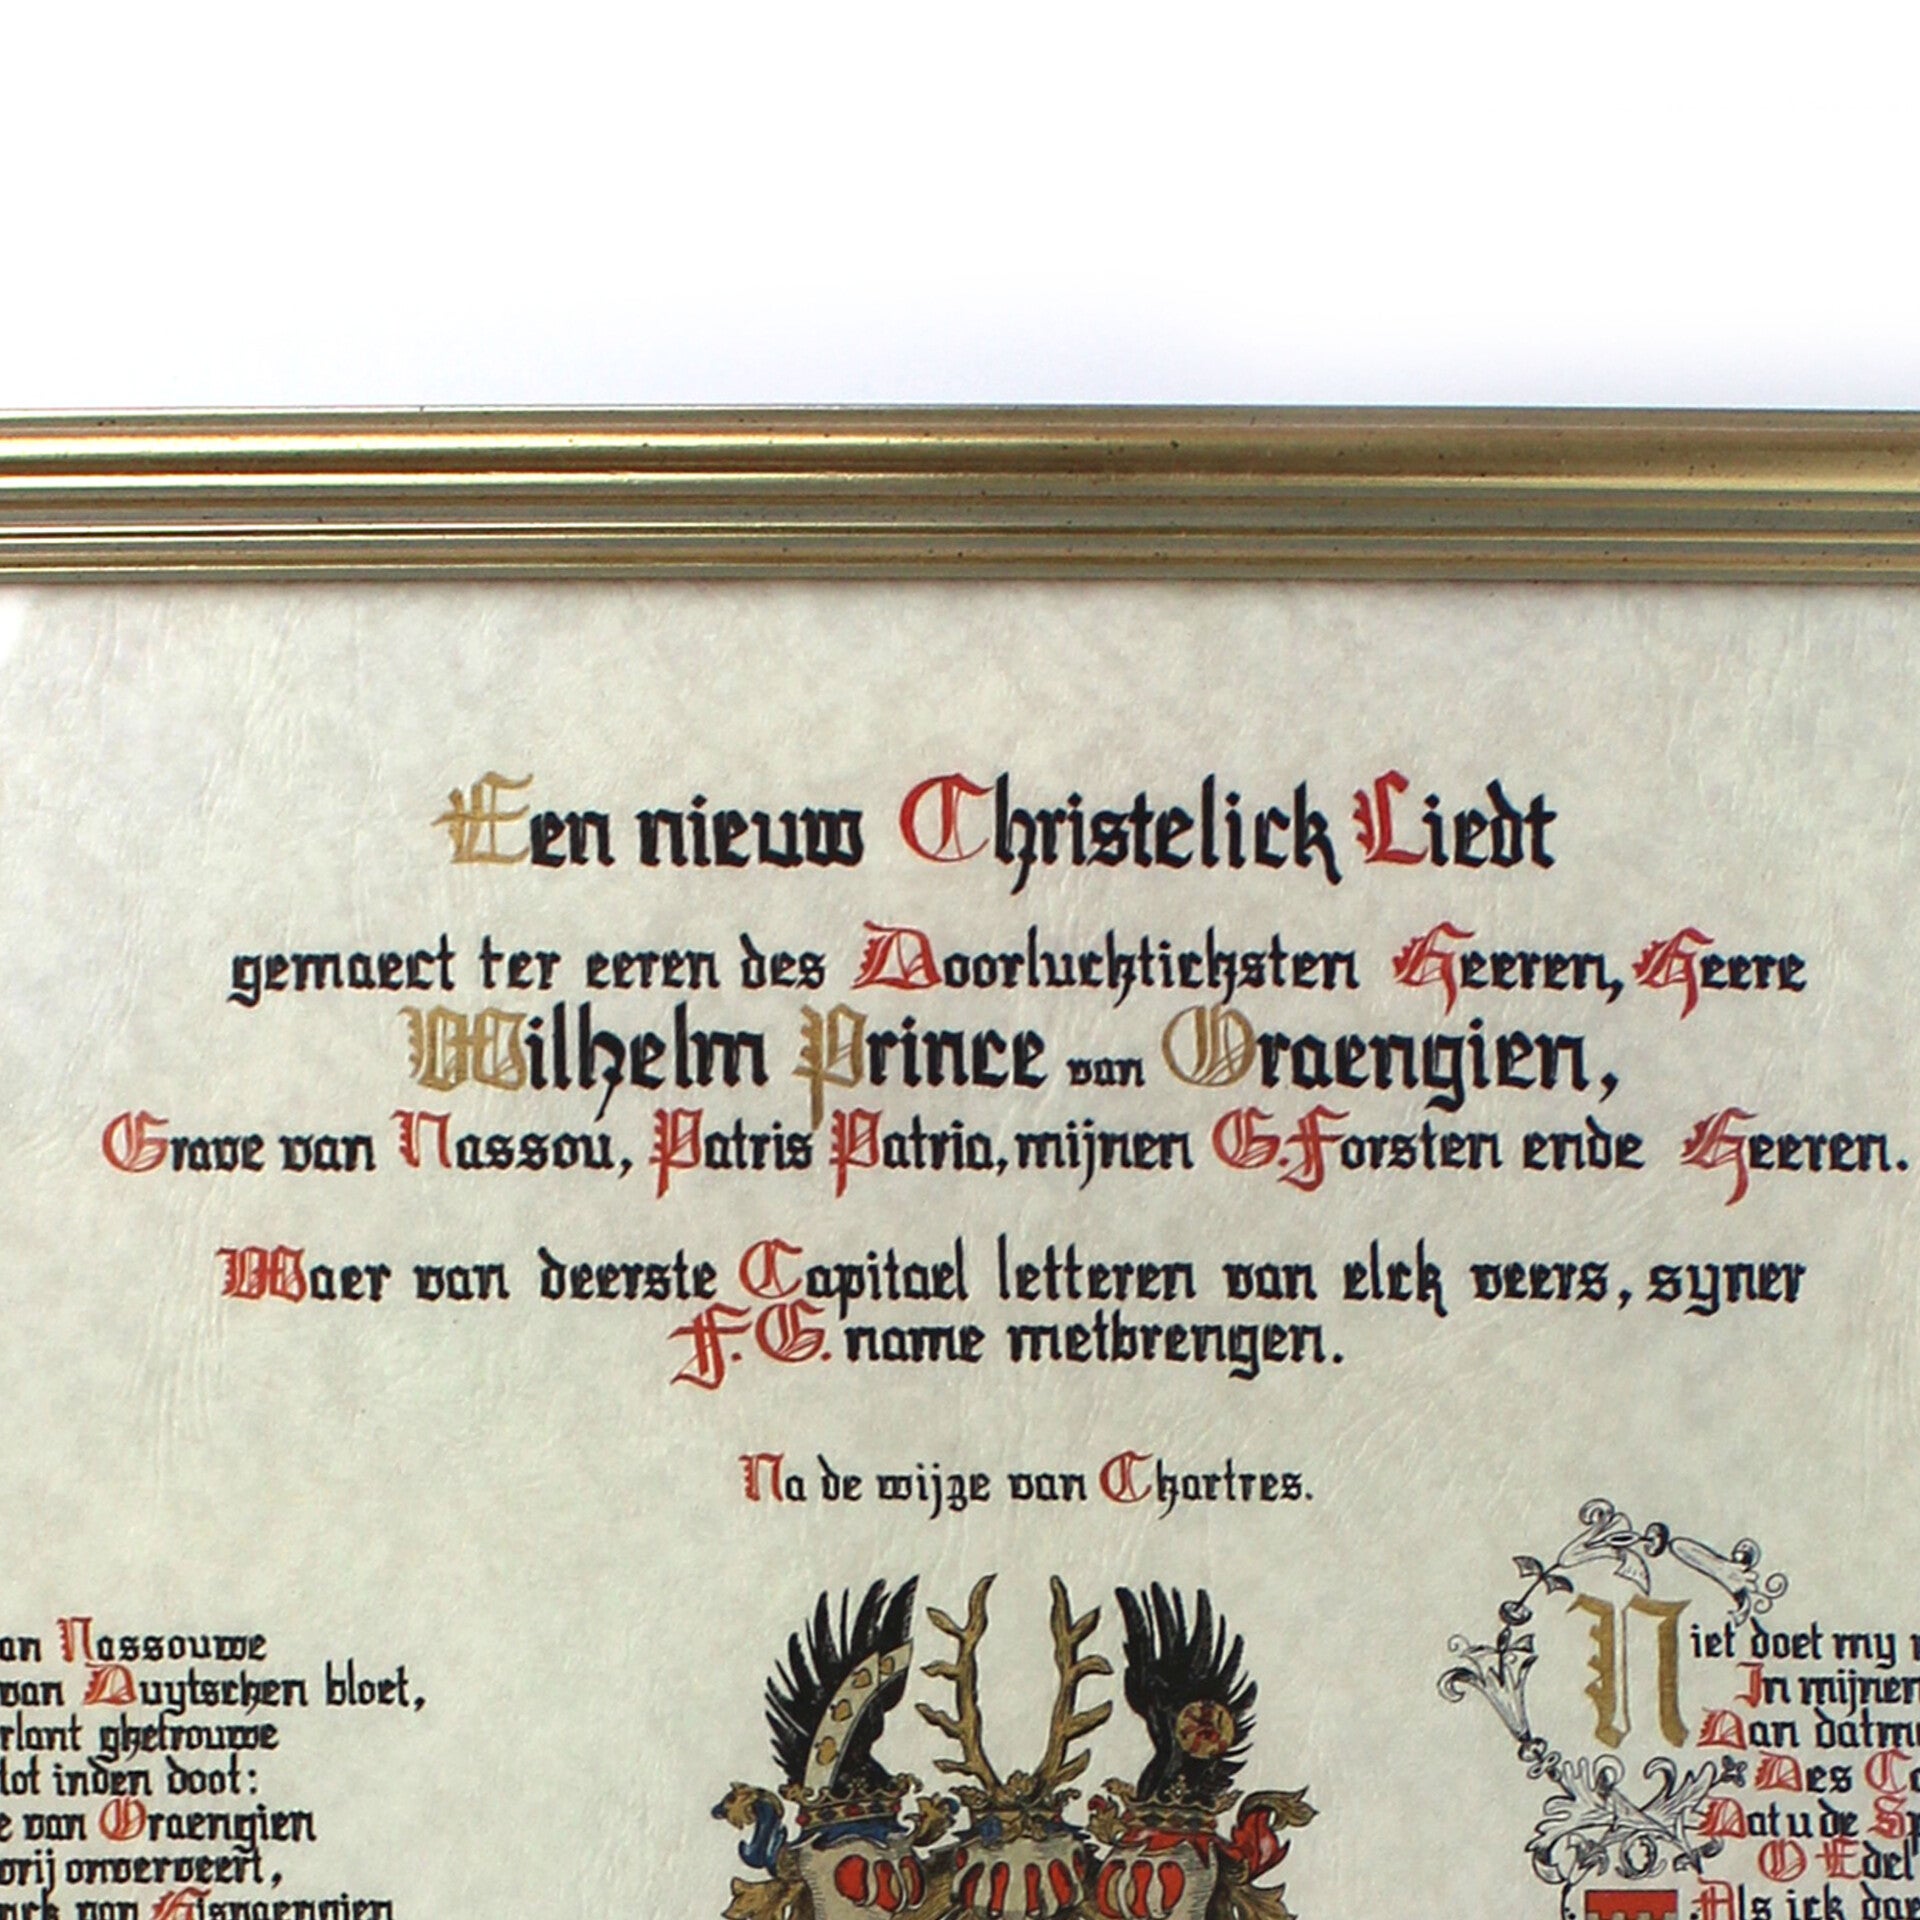 Een nieuw Christelick Liedt
gemaect ter eeren des Doorluchtichsten Heeren, Heere
Wilhelm Prince van Oraengien,
Grave van Nassou, Patris Patria, mijnen G. Forsten ende Heeren.
Waer van deerste Capitael letteren van elck veers, syner
F. G. name metbrengen.
Na de wijze van Chartres.
an Nassouwe
van Duytschen bloet,
rlant ghetrouwe
tot inden doot:
e van Oraengien
vrij onverveert,
nck van Hispaengien
Niet doet my
In mijnen
Dan datm
Des Co
Dat u de Sp
O Edel
Als ick dae